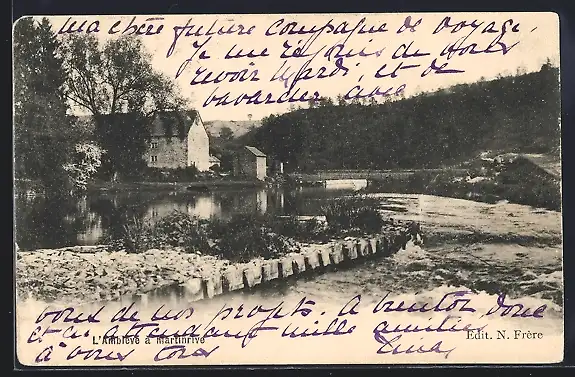 Ma chère future Compagne de voyage,
Je me réjouis de vous
revoir Mardi, et de
bavarder avec
vous de nos projets. A bientôt donc
et en attendant mille amitiés
L'Amblève à Martinrive
Edit. N. Frère
à vous tous